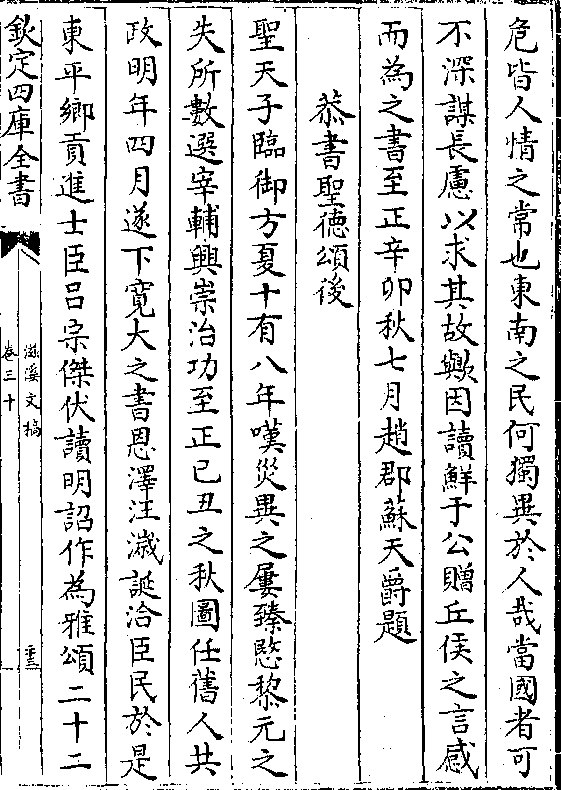 危皆人情之常也東南之民何獨異於人哉當國者可
不深謀長慮以求其故歟因讀鮮于公贈丘侯之言感
而為之書至正辛卯秋七月趙郡蘇天爵題
恭書聖德頌後
聖天子臨御方夏十有八年嘆災異之屢臻愍黎元之
失所數選宰輔興崇治功至正己丑之秋圖任舊人共
政明年四月遂下寛大之書恩澤汪濊誕洽臣民於是
東平鄉貢進士臣呂宗傑伏讀明詔作為雅頌二十二
欽定四庫全書
滋溪文稿
卷三十